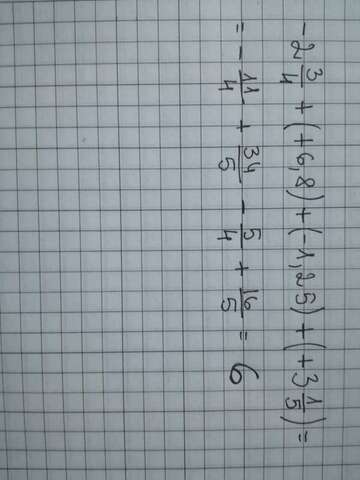 -2 3/4 + (+6,8) + (-1,25) + (+3 1/5) =
= - 11/4 + 34/5 - 5/4 + 16/5 = 6